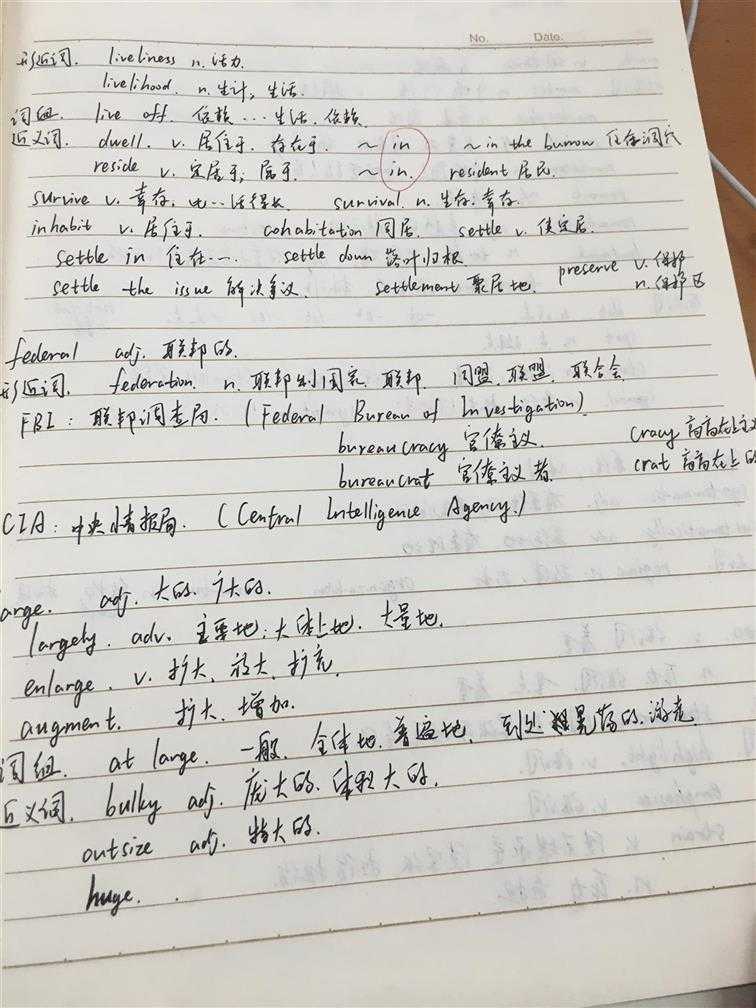 No. Date.
形近词. liveliness n. 活力.
livelihood. n. 生计, 生活.
词组. live off. 依赖…生活. 依赖.
近义词. dwell. v. 居住于. 存在于. ~ in ~ in the burrow 住在洞穴
reside v. 定居于; 属于. ~ in. resident 居民.
survive v. 幸存, 比…活得长. survival. n. 生存. 幸存.
inhabit v. 居住于. cohabitation 同居. settle v. 使定居.
settle in 住在…. settle down 落叶归根 preserve v. 保护
settle the issue 解决争议. settlement 聚居地. n. 保护区
federal adj. 联邦的.
形近词. federation. n. 联邦制国家. 联邦. 同盟. 联盟. 联合会
FBI: 联邦调查局. (Federal Bureau of Investigation)
bureaucracy 官僚主义. cracy 高高在上主义
bureaucrat 官僚主义者. crat 高高在上的
CIA: 中央情报局. (Central Intelligence Agency.)
arge. adj. 大的. 广大的.
largely. adv. 主要地; 大体上地. 大量地.
enlarge. v. 扩大. 放大. 扩充.
augment. 扩大. 增加.
词组. at large. 一般. 全体地. 普遍地. 到处 晃荡的.
近义词. bulky adj. 庞大的. 体积大的.
outsize adj. 特大的.
huge. .